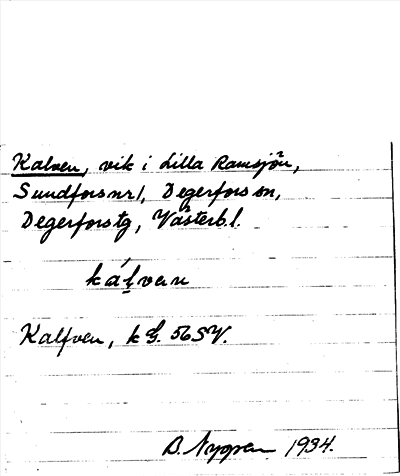 Kalven, vik i Lilla Ramsjön,
Sundfors nr 1, Degerfors sn,
Degerfors tg, Västerb. l.
kálven
Kalfven, k G. 56 SV.
B. Nygren 1934.